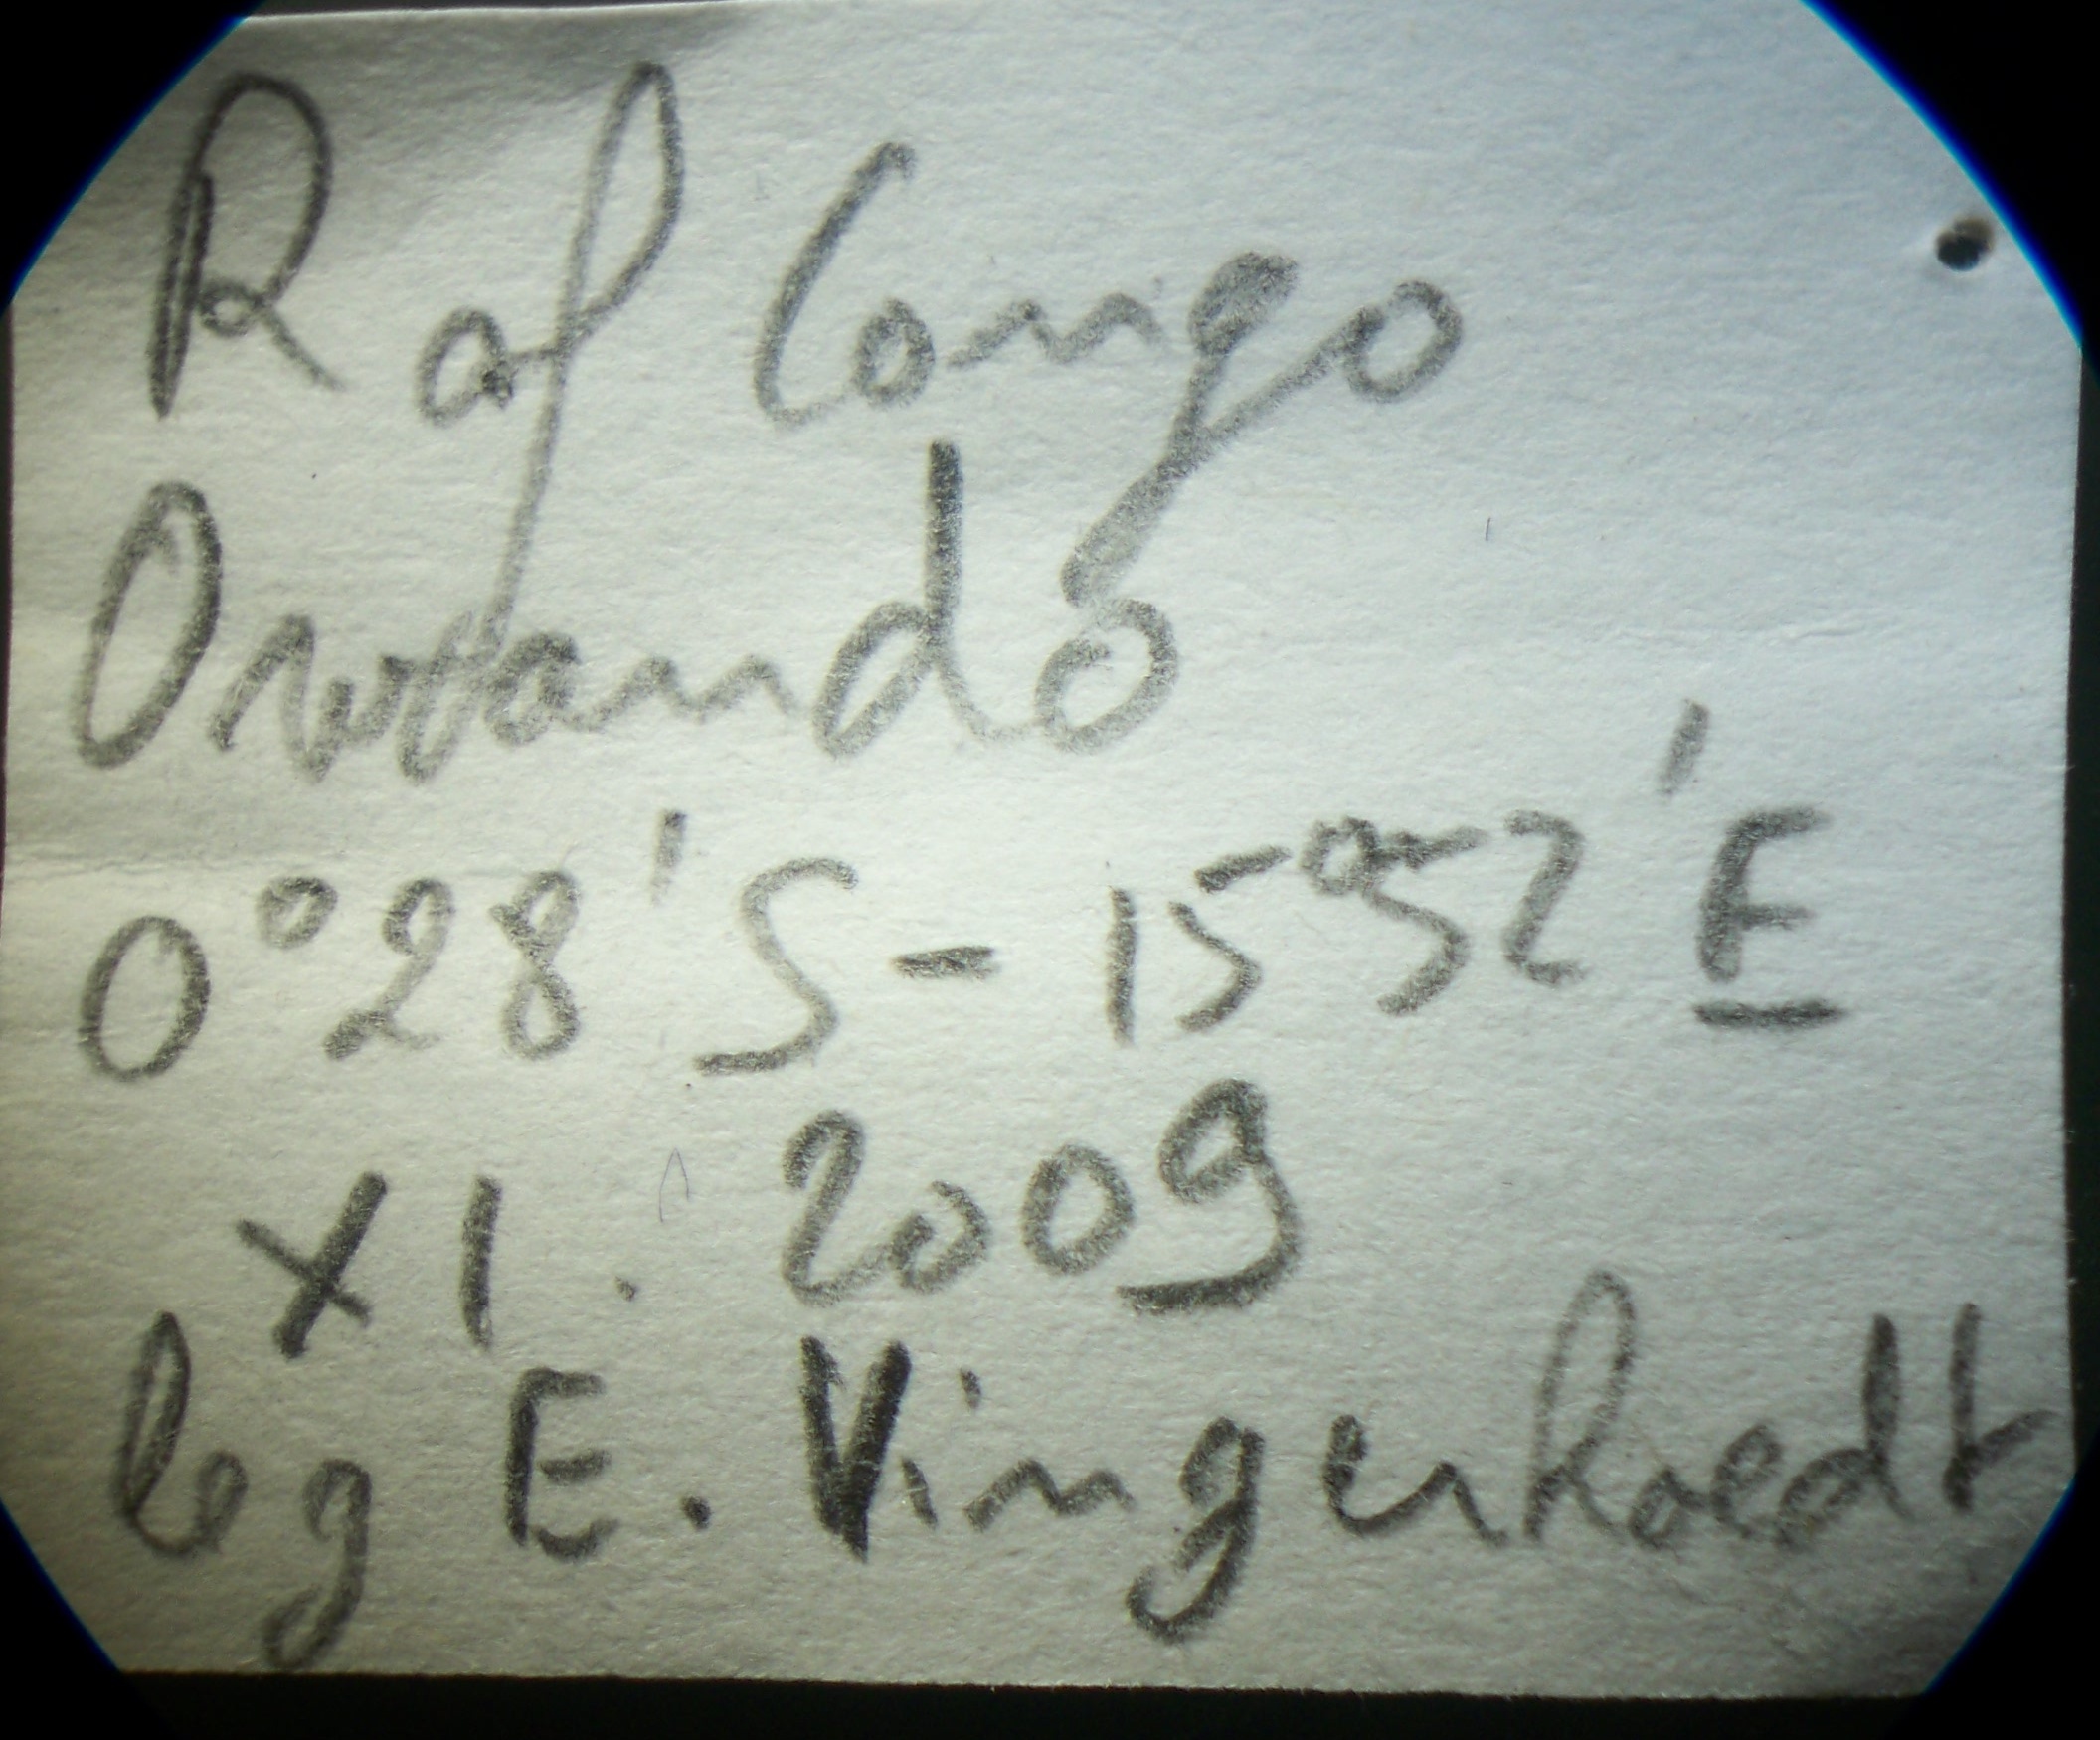 R of Congo
Owando
0°28'S - 15°52'E
XI. 2009
leg E. Vingerhoedt